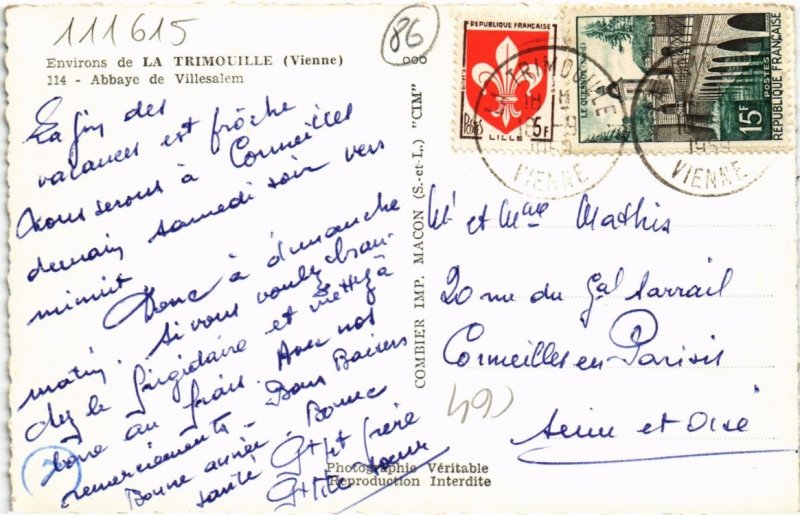 111615
86
Environs de LA TRIMOUILLE (Vienne)
114 - Abbaye de Villesalem
La fin des
vacances est proche
nous serons à Cormeilles
demain samedi soir vers
minuit
Donc à dimanche
matin. Si vous voulez bran-
chez le frigidaire et mettez à
boire au frais. Avec nos
remerciements. Bons Baisers
Bonne année. Bonne
santé Gd et frère
sœur
Photographie Véritable
Reproduction Interdite
COMBIER IMP. MACON (S.-et-L.) "CIM"
RÉPUBLIQUE FRANÇAISE
Postes
5F
LILLE
LE QUESNOY (Nord)
15F
POSTES
REPUBLIQUE FRANÇAISE
LA TRIMOUILLE
VIENNE
1959
VIENNE
Mr et Mme Mathis
20 rue du Gal Sarrail
Cormeilles en Parisis
Seine et Oise
490